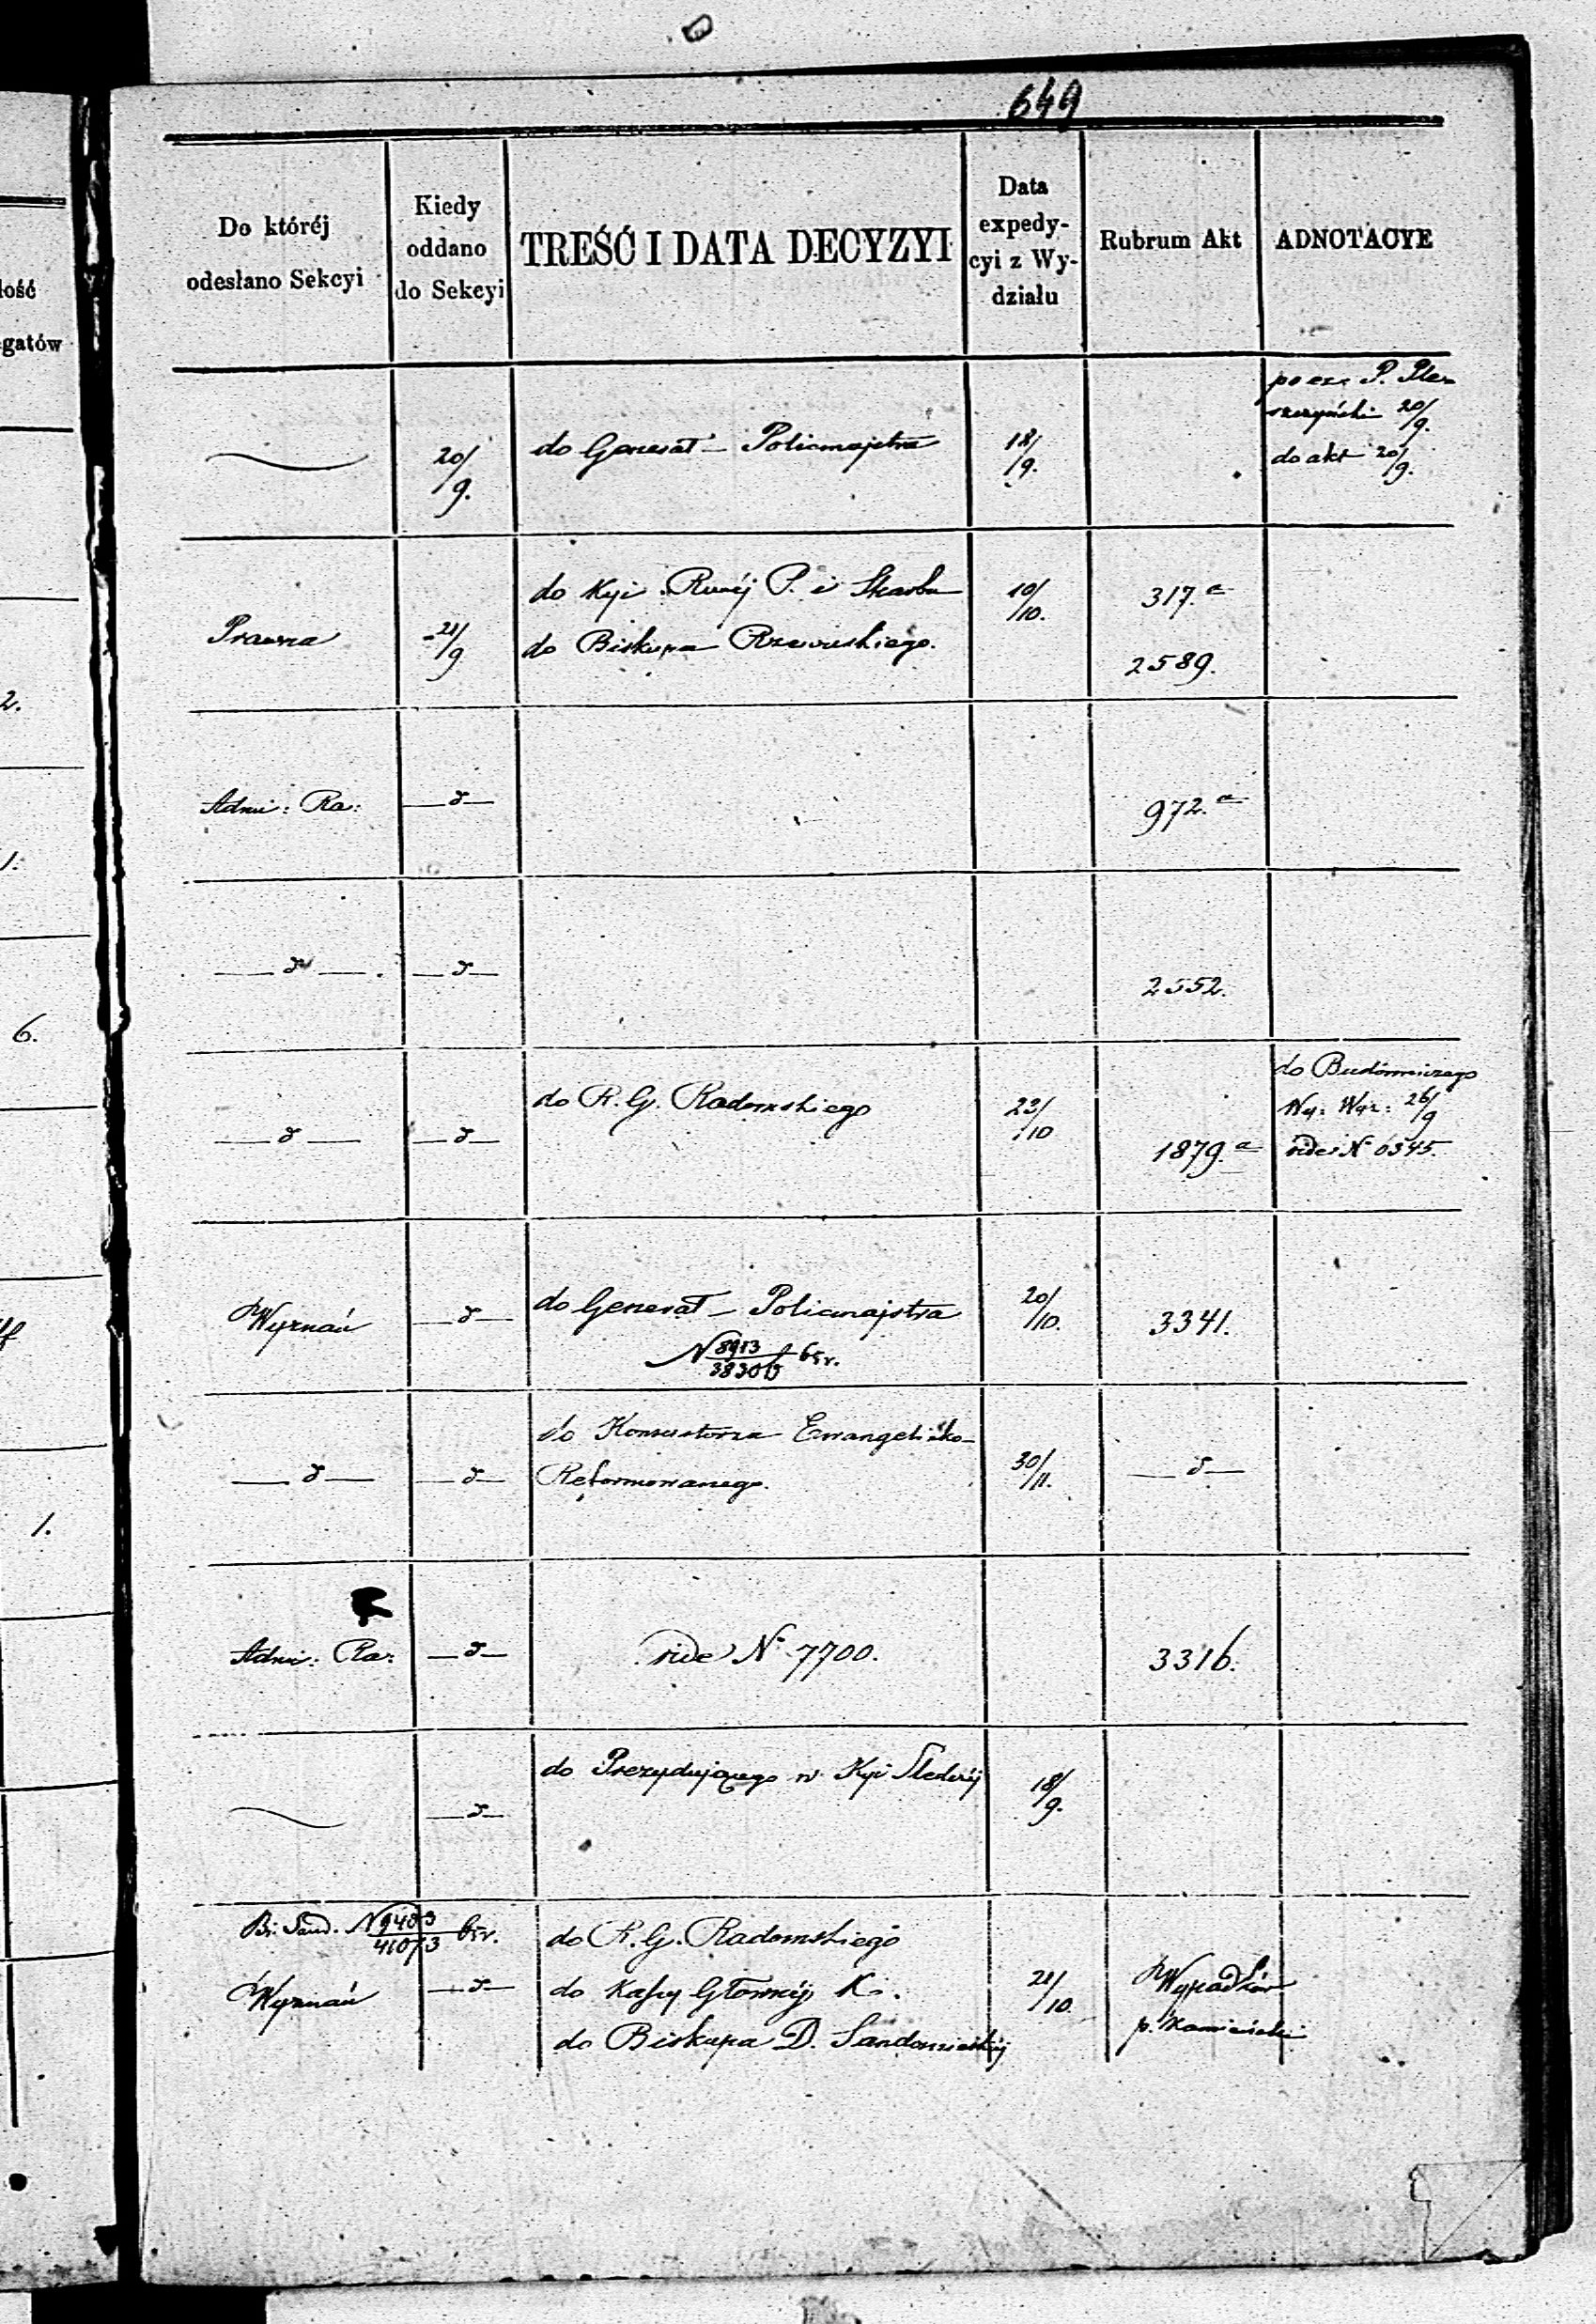 649
Do któréj
odesłano Sekcyi
Kiedy
oddano
do Sekcyi
TREŚĆ I DATA DECYZYI
Data
expedy-
cyi z Wy-
działu
Rubrum Akt
ADNOTACYE
lość
gatów
20/9.
do Generał-Policmajstra
18/9.
P. Ple-
szczyński 20/9.
do akt 20/9.
Prawna
21/9
do Kyi Rząéj P. i Skarbu
do Biskupa Rzewuskiego.
10/10.
317.a
2589.
2.
Admi: Ra:
—d—
972.a
1.
—d—
—d—
2552.
6.
—d—
—d—
do R. G. Radomskiego
23/10
1879.a
do Budowniczego
Wy: Wyz: 26/9
vide N 6345.
Wyznań
—d—
do Generał-Policmajstra
N 8913/38306 65r.
20/10.
3341.
—d—
—d—
do Konsystorza Ewangelicko-
Reformowanego.
30/11.
—d—
1.
Admi: Ra:
—d—
vide N 7700.
3316.
—d—
do Prezydującego w Kyi Śledczéj
18/9.
Bi. Sand. N 9483/41073 65r.
Wyznań
—d—
do R. G. Radomskiego
do Kassy Głównéj K.
do Biskupa D. Sandomierskiéj
21/10.
Wypadków
p. Kamieński